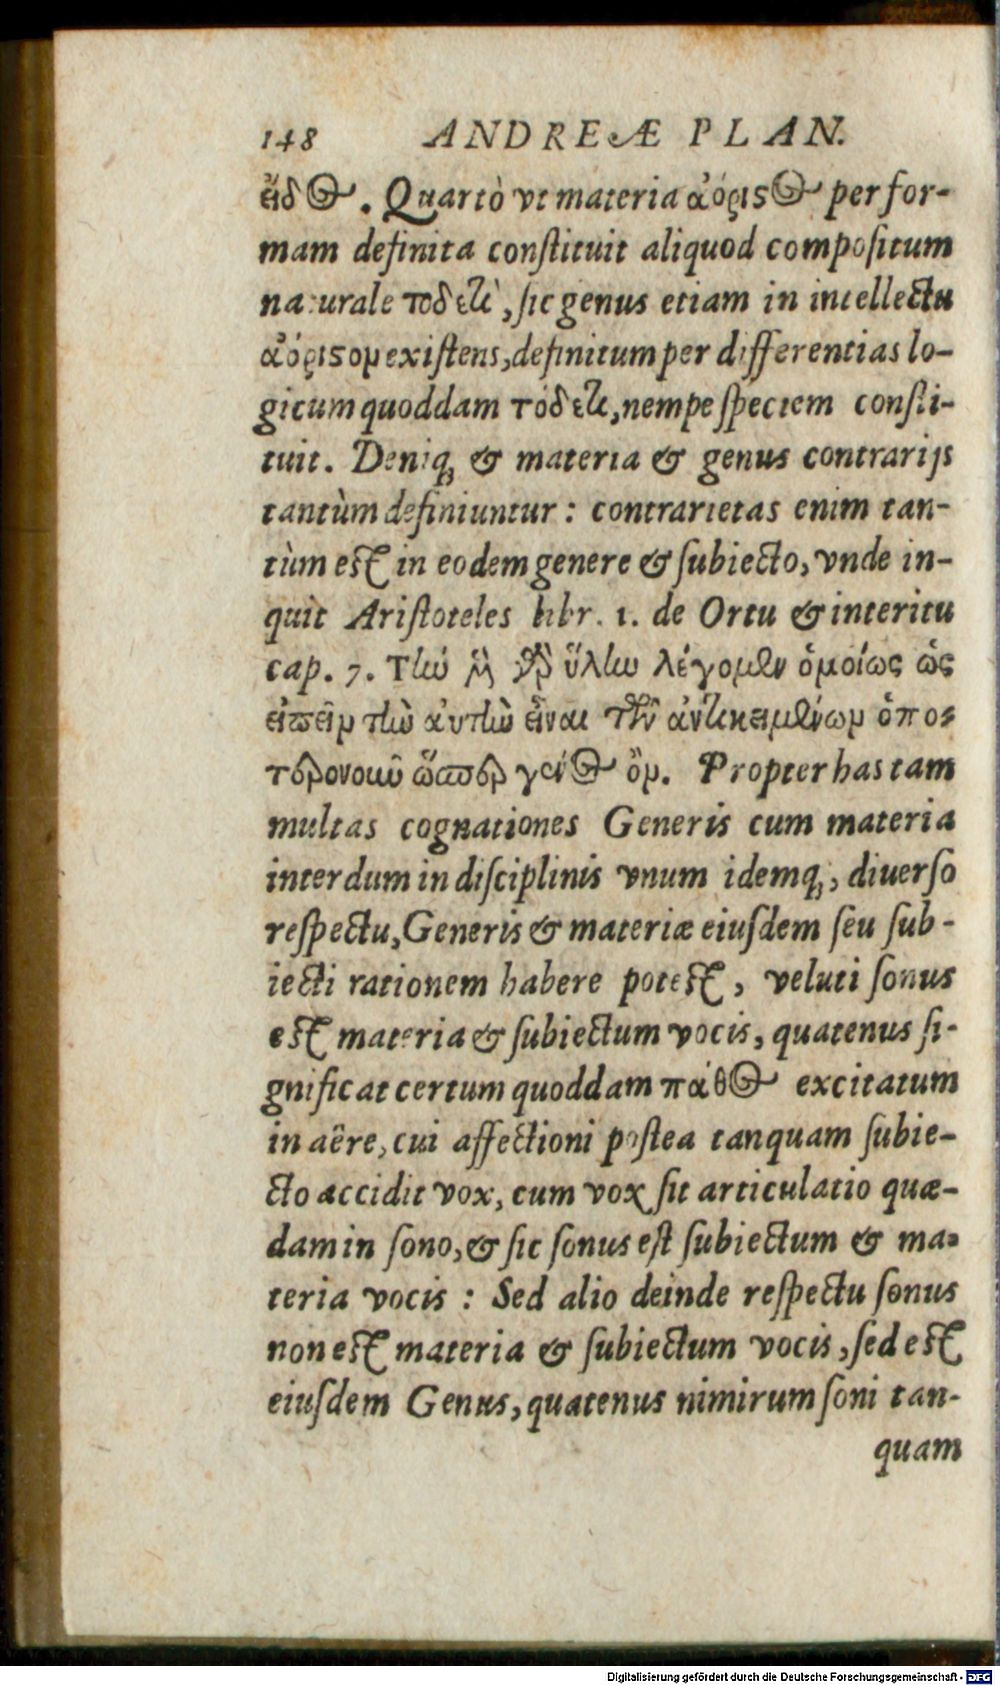 148 ANDREÆ PLAN.
εἴδος. Quartò vt materia ἀόριςος per for-
mam definita conſtituit aliquod compoſitum
naturale τοδετὶ, ſic genus etiam in intellectu
ἀόριςομ exiſtens, definitum per differentias lo-
gicum quoddam τόδετι, nempe ſpeciem conſti-
tuit. Deniq; & materia & genus contrarijs
tantùm definiuntur: contrarietas enim tan-
tùm eſt in eodem genere & ſubiecto, vnde in-
quit Ariſtoteles libr. 1. de Ortu & interitu
cap. 7. Τὼ μὲν γὰρ ὕλὼ λέγομεν ὁμοίως ὡς
εἰπεῖμ τὼ αὐτὼ εἶναι τῶν ἀντικειμένωμ ὁπο-
τερονοιῶ ὥσπερ γένος ὄμ. Propter has tam
multas cognationes Generis cum materia
interdum in diſciplinis vnum idemq;, diuerſo
reſpectu, Generis & materiæ eiuſdem ſeu ſub-
iecti rationem habere poteſt, veluti ſonus
eſt materia & ſubiectum vocis, quatenus ſi-
gnificat certum quoddam πάθος excitatum
in aëre, cui affectioni poſtea tanquam ſubie-
cto accidit vox, cum vox ſit articulatio quæ-
dam in ſono, & ſic ſonus eſt ſubiectum & ma-
teria vocis: Sed alio deinde reſpectu ſonus
non eſt materia & ſubiectum vocis, ſed eſt
eiuſdem Genus, quatenus nimirum ſoni tan-
quam
Digitalisierung gefördert durch die Deutsche Forschungsgemeinschaft - DFG